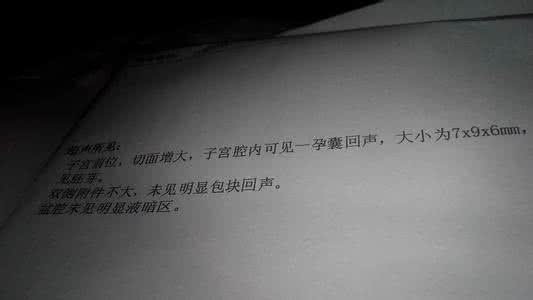 超声所见：
子宫前位，切面增大，子宫腔内可见一孕囊回声，大小为7x9x6mm，
见胚芽。
双侧附件不大，未见明显包块回声。
盆腔未见明显液暗区。